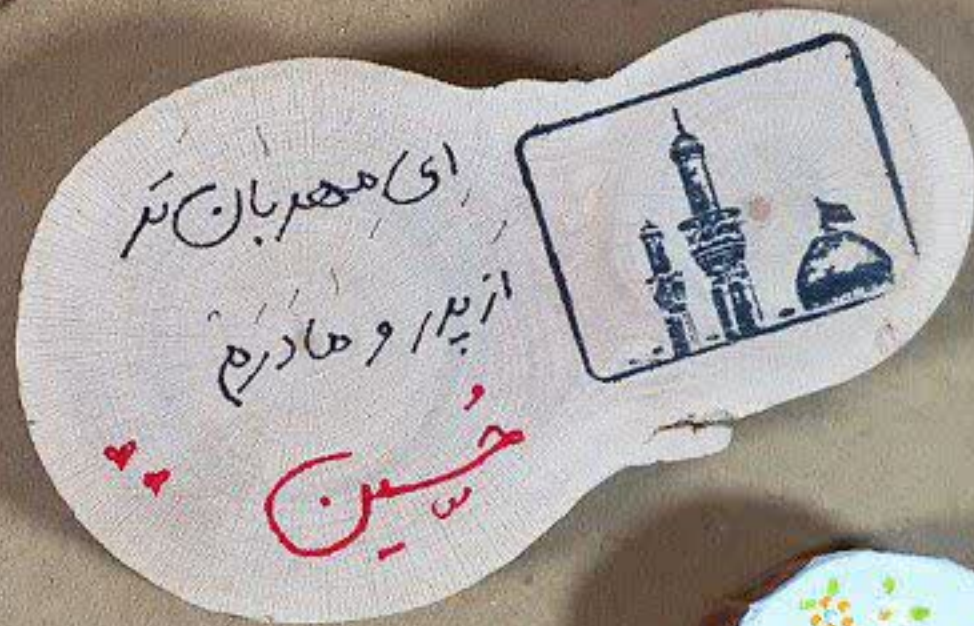 ای مهربان تر
از پدر و مادرم
حُسین